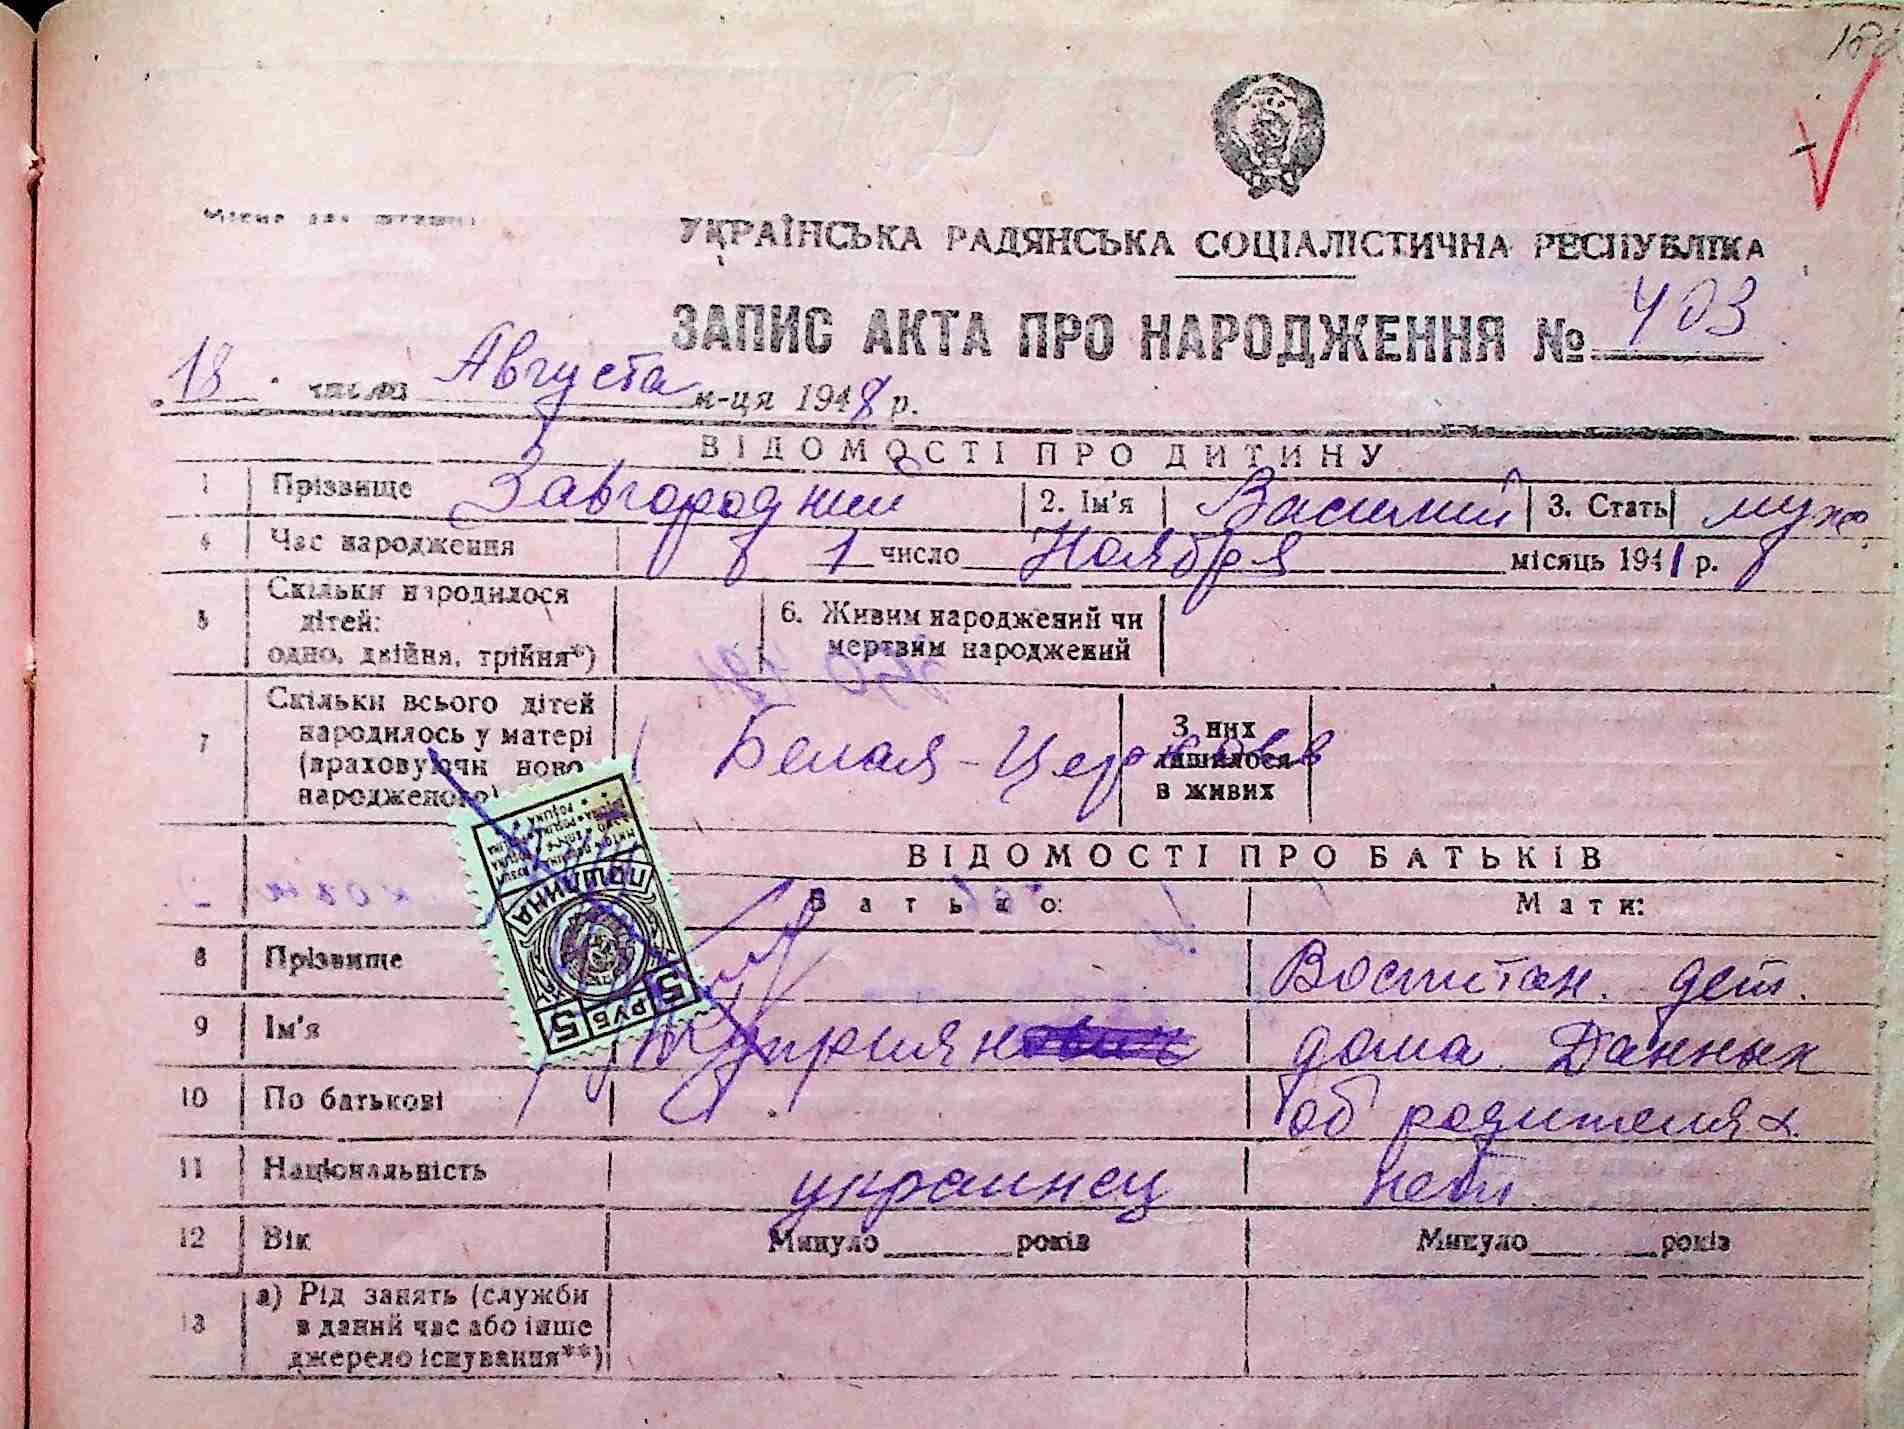 УКРАЇНСЬКА РАДЯНСЬКА СОЦІАЛІСТИЧНА РЕСПУБЛІКА
ЗАПИС АКТА ПРО НАРОДЖЕННЯ № 403
18 числа Августа м-ця 1948 р.
ВІДОМОСТІ ПРО ДИТИНУ
1 Прізвище Завгородний 2. Ім'я Василий 3. Стать муж
4 Час народження 1 число Ноября місяць 1941 р.
5 Скільки народилося дітей: одно, двійня, трійня*) 6. Живим народжений чи мертвим народжений
7 Скільки всього дітей народилось у матері (враховуючи ново народженого) Белая-Церковь З них лишилося в живих
ВІДОМОСТІ ПРО БАТЬКІВ
Батько: Мати:
8 Прізвище Воспитан. дет.
9 Ім'я Куприян дома Данных
10 По батькові об родителях
11 Національність украинец нет
12 Вік Минуло років Минуло років
13 а) Рід занять (служби в даний час або інше джерело існування**)
ПОШЛИНА
5 РУБ 5